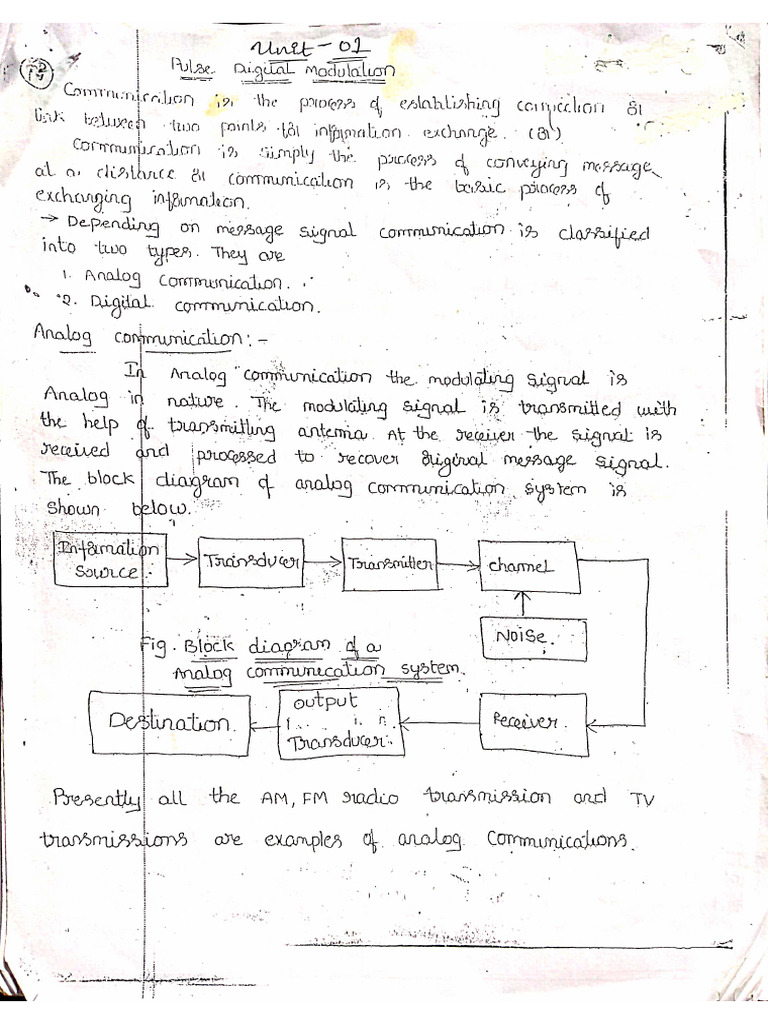 Unit - 01
Pulse Digital Modulation
Communication is the process of establishing connection or
link between two points for information exchange. (or)
Communication is simply the process of conveying message
at a distance or communication is the basic process of
exchanging information.
→ Depending on message signal communication is classified
into two types. They are
1. Analog communication.
2. Digital communication.
Analog communication:-
In Analog communication the modulating signal is
Analog in nature. The modulating signal is transmitted with
the help of transmitting antenna. At the receiver the signal is
received and processed to recover original message signal.
The block diagram of analog communication system is
shown below.
Information
Source
Transducer
Transmitter
channel
Noise
Fig. Block diagram of a
Analog communication system.
Destination
output
Transducer
Receiver
Presently all the AM, FM radio transmission and TV
transmissions are examples of analog communications.